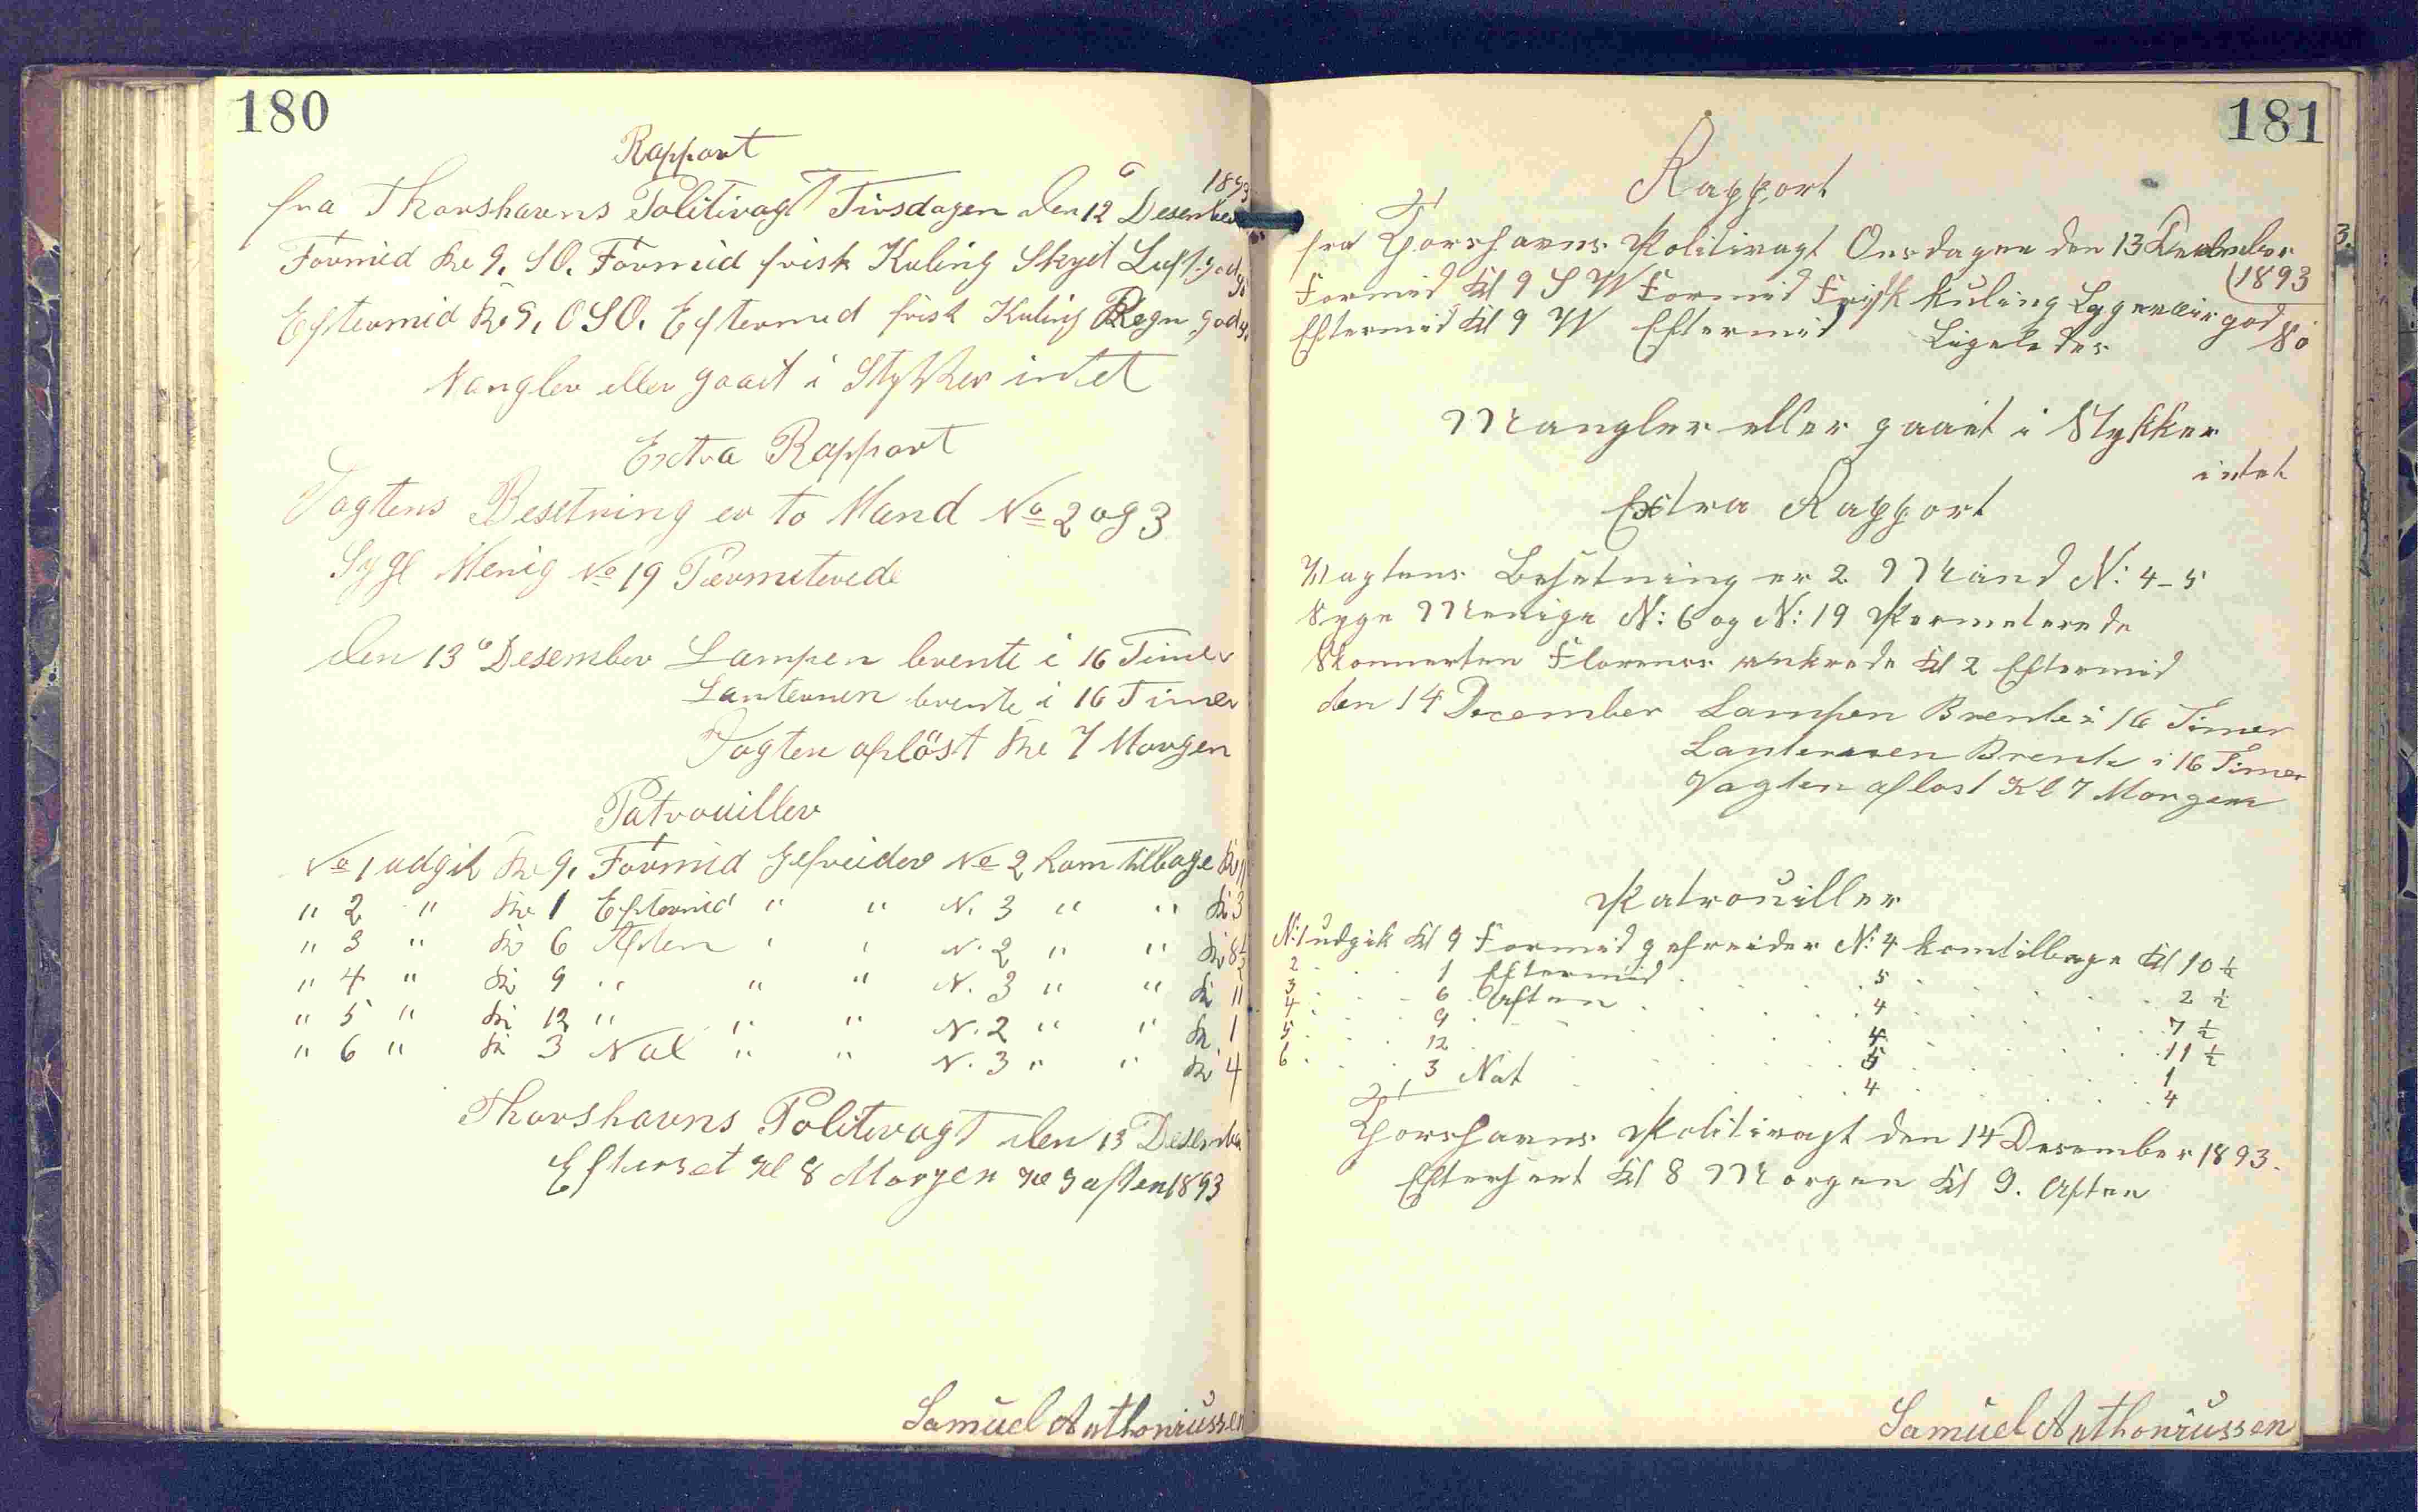 180
Rapport
1893
fra Thorshavns Politivagt Tirsdagen den 12 Desember
Formid Kl 9. SO. Formid frisk Kuling Skyet Luft. god
Eftermid Kl 9. OSO. Eftermid frisk Kuling Regn god
Mangler eller gaaet i Stykker intet
Extra Rapport
Vagtens Besetning er to Mand No 2 og 3
Syge Menig No 19 Permeterede
den 13 Desember Lampen brente i 16 Timer
Lanternen brente i 16 Timer
Vagten aflöst Kl 7 Morgen
Patrouiller
No 1 udgik Kl 9. Formid gefreider No 2 kom tilbage Kl 11
" 2 " Kl 1 Eftermid " " N. 3 " " Kl 3
" 3 " Kl 6 Aften " " N. 2 " " Kl 8½
" 4 " Kl 9 " " " N. 3 " " Kl 11
" 5 " Kl 12 " " " N. 2 " " Kl 1
" 6 " Kl 3 Nat " " N. 3 " " Kl 4
Thorshavns Politivagt den 13 Desember
Efterset Kl 8 Morgen Kl 9 aften 1893
Samuel Anthoniussen
181
Rapport
fra Thorshavns Politivagt Onsdagen den 13 December
1893
Formid Kl 9 S W Formid Frisk Kuling god
Eftermid Kl 9 W Eftermid Ligeledes Sö
Mangler eller gaaet i Stykker
intet
Extra Rapport
Vagtens Besetning er 2 Mand N: 4-5
Syge Menige N: 6 og N: 19 Permeterede
Skonnerten Florence ankrede Kl 2 Eftermid
den 14 December Lampen Brente i 16 Timer
Lanternen Brente i 16 Timer
Vagten aflost Kl 7 Morgen
Patrouiller
N: 1 udgik Kl 9 Formid gefreider N: 4 kom tilbage Kl 10 ½
2 . . . 1 Eftermid . . 5 . . . 2 ½
3 . . . 6 Aften . . 4 . . . 7 ½
4 . . . 9 . . . 4 . . . 11 ½
5 . . . 12 . . . 5 . . . 1
6 . . . 3 Nat . . 4 . . . 4
Thorshavns Politivagt den 14 Desember 1893.
Efterseet Kl 8 Morgen Kl 9. Aften
Samuel Anthoniussen